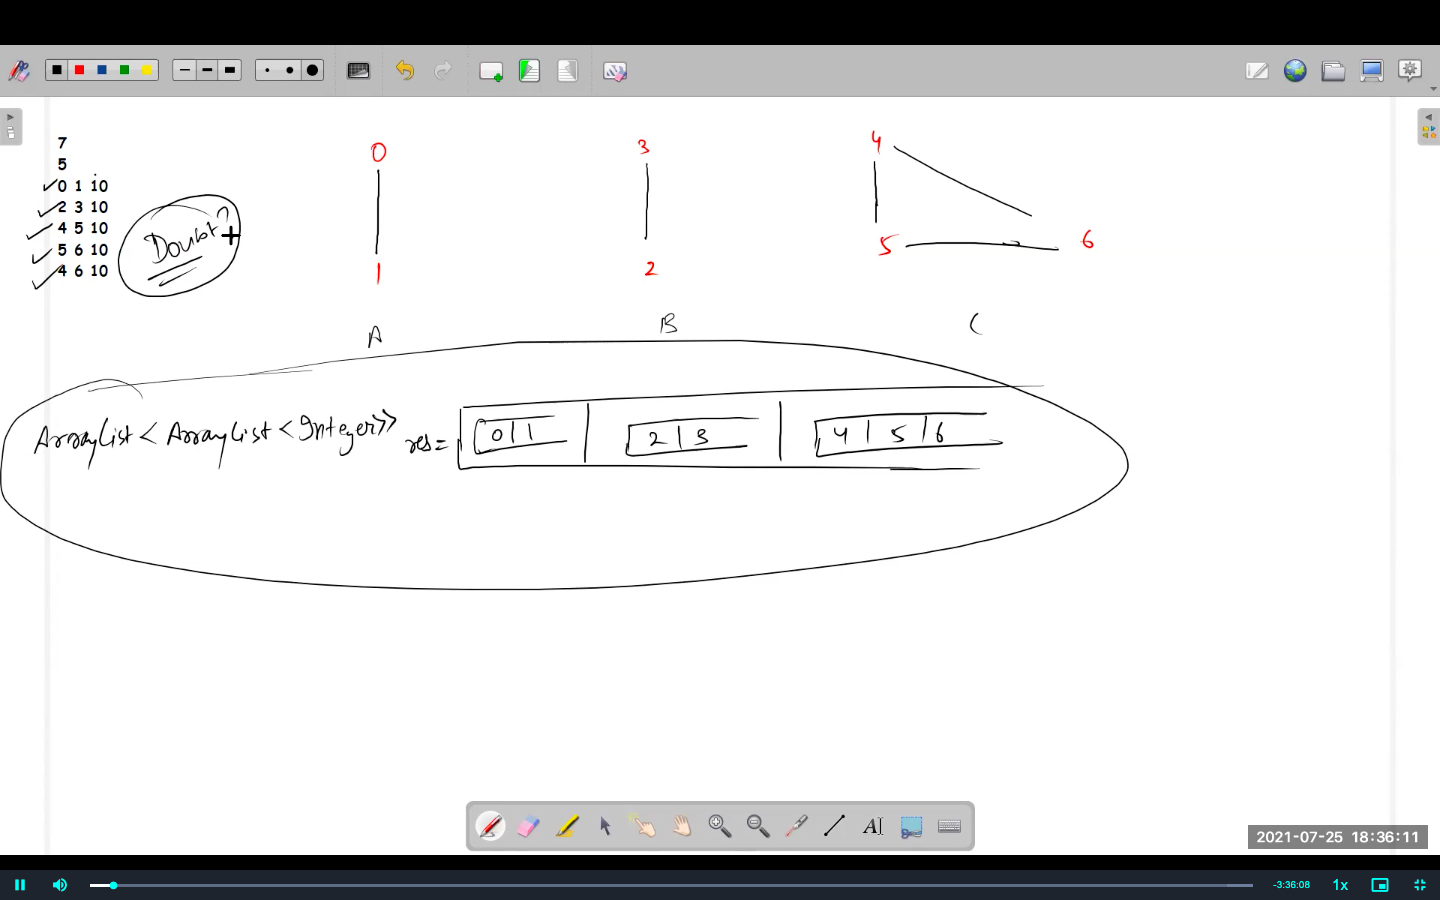 7
5
0 1 10
2 3 10
4 5 10
5 6 10
4 6 10
Doubt?
0
1
A
3
2
B
4
5
6
C
ArrayList < ArrayList < Integer>> res =
0 1
2 3
4 5 6
2021-07-25 18:36:11
-3:36:08
1x